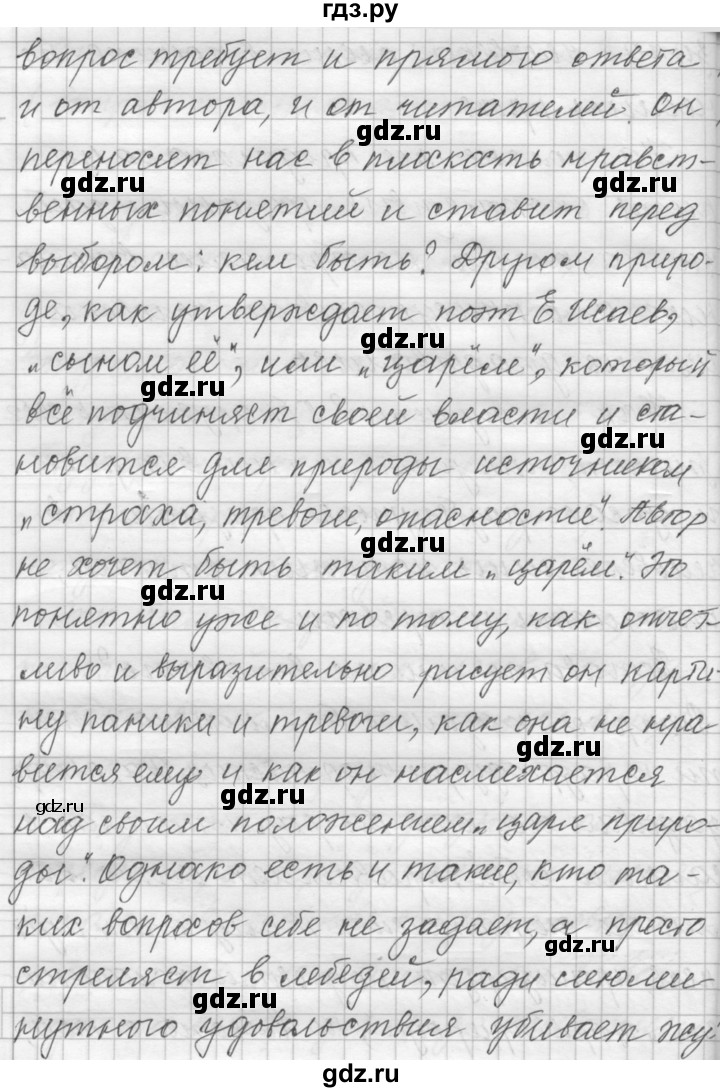 гдз.ру
вопрос требует и прямого ответа
и от автора, и от читателей. Он
gdz.ru
переносит нас в плоскость нравст-
gdz.ru
gdz.ru
венных понятий и ставит перед
выбором: кем быть? Другом приро-
де, как утверждает поэт Е Исаев,
gdz.ru
"сыном её", или "царём", который
gdz.ru
всё подчиняет своей власти и ста-
gdz.ru
новится для природы источником
"страха, тревоги, опасности". Автор
gdz.ru
не хочет быть таким "царём". Это
gdz.ru
понятно уже и по тому, как отчет-
ливо и выразительно рисует он карти-
ну паники и тревоги, как она не нра-
gdz.ru
вится ему и как он насмехается
gdz.ru
gdz.ru
над своим положением "царя приро-
ды". Однако есть и такие, кто та-
ких вопросов себе не задает, а просто
gdz.ru
стреляет в лебедей, ради сиюми-
gdz.ru
нутного удовольствия убивает жу-